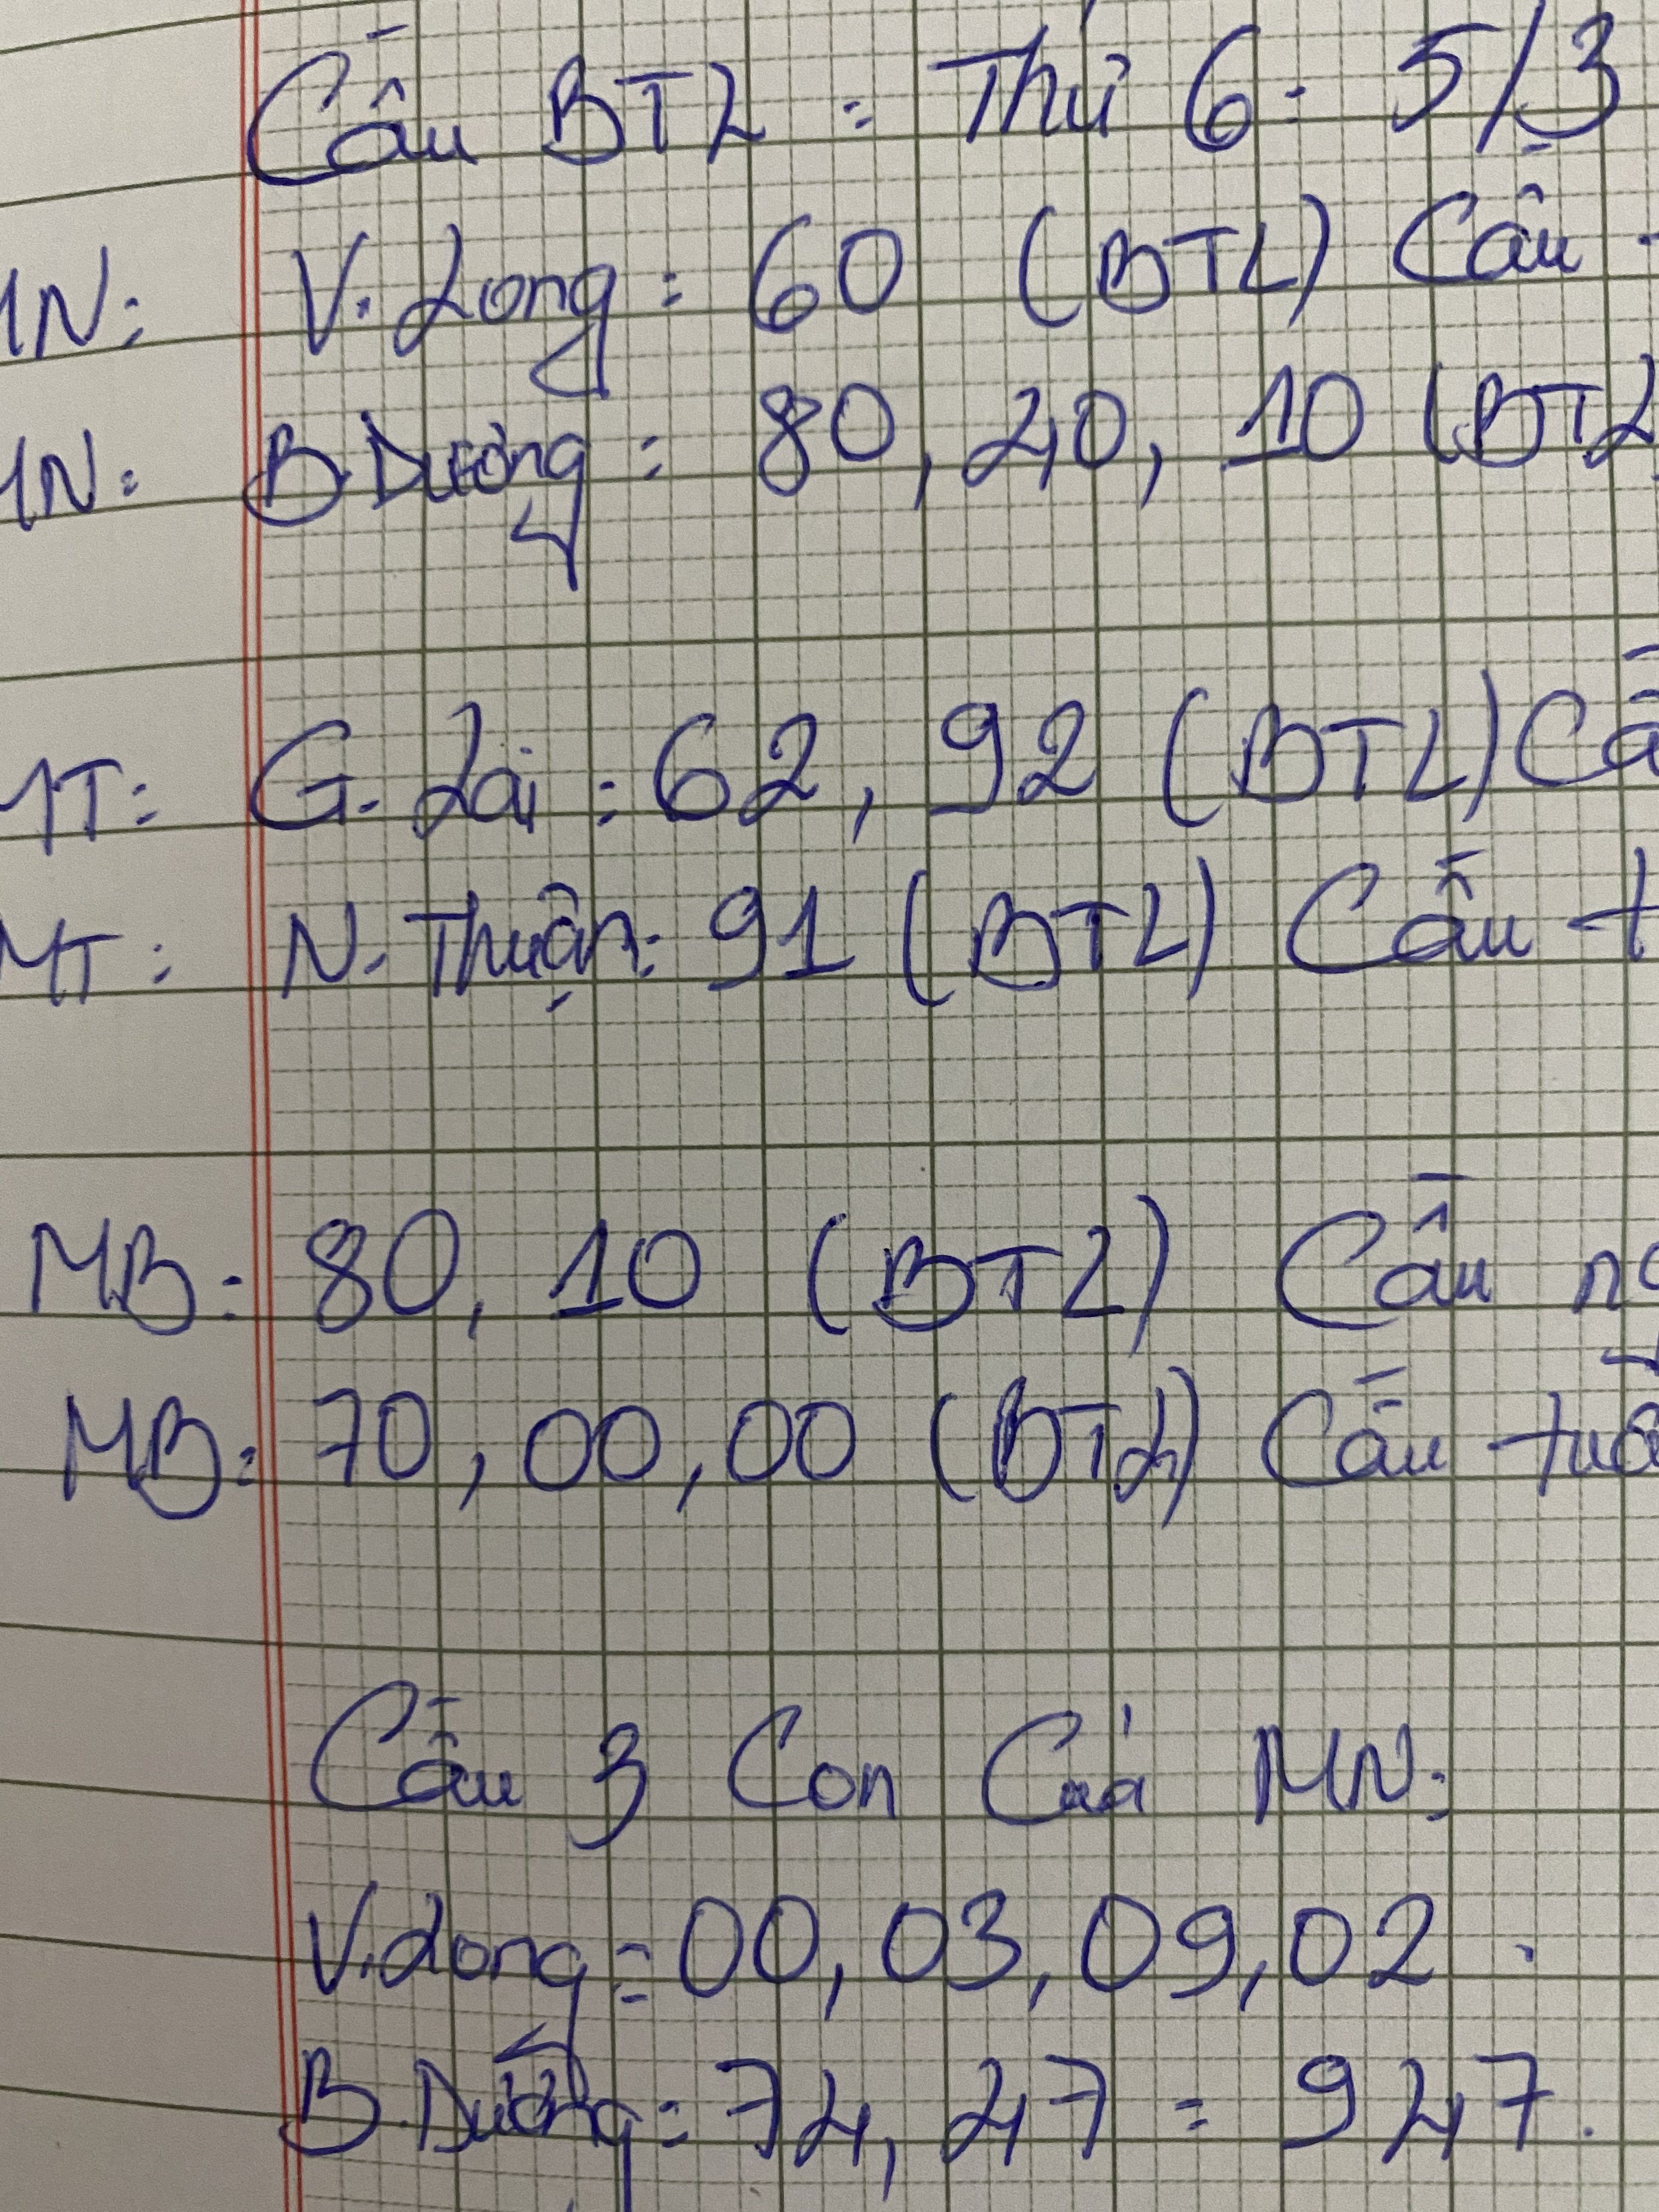 Cầu BTL : Thứ 6 : 5/3
MN: V. Long : 60 (BTL) Cầu
MN: B. Dương : 80, 40, 10 (BTL
MT: G. Lai : 62, 92 (BTL) Cầ
MT: N. Thuận : 91 (BTL) Cầu t
MB: 80, 10 (BTL) Cầu ng
MB: 70, 00, 00 (BTL) Cầu tuầ
Cầu 3 Con Của MN:
V. Long = 00, 03, 09, 02 .
B. Dương = 74, 47 = 947.